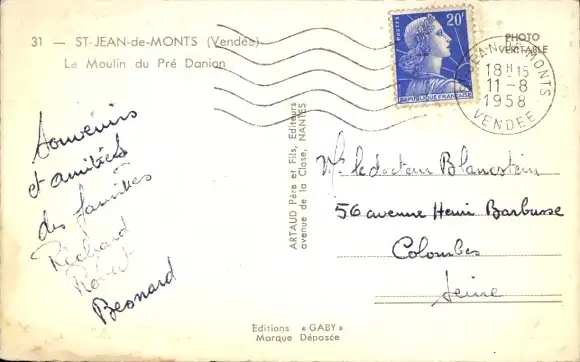 31 — ST-JEAN-de-MONTS (Vendée)
Le Moulin du Pré Danion
PHOTO
VÉRITABLE
POSTES
20F
REPUBLIQUE FRANÇAISE
ST JEAN DE MONTS
18H15
11-8
1958
VENDEE
Souvenirs
et amitiés
des familles
Richard
Robert
Beonard
ARTAUD Père et Fils, Editeurs
avenue de la Close, NANTES
Mr le docteur Blancstein
56 avenue Henri Barbusse
Colombes
Seine
Editions « GABY »
Marque Déposée